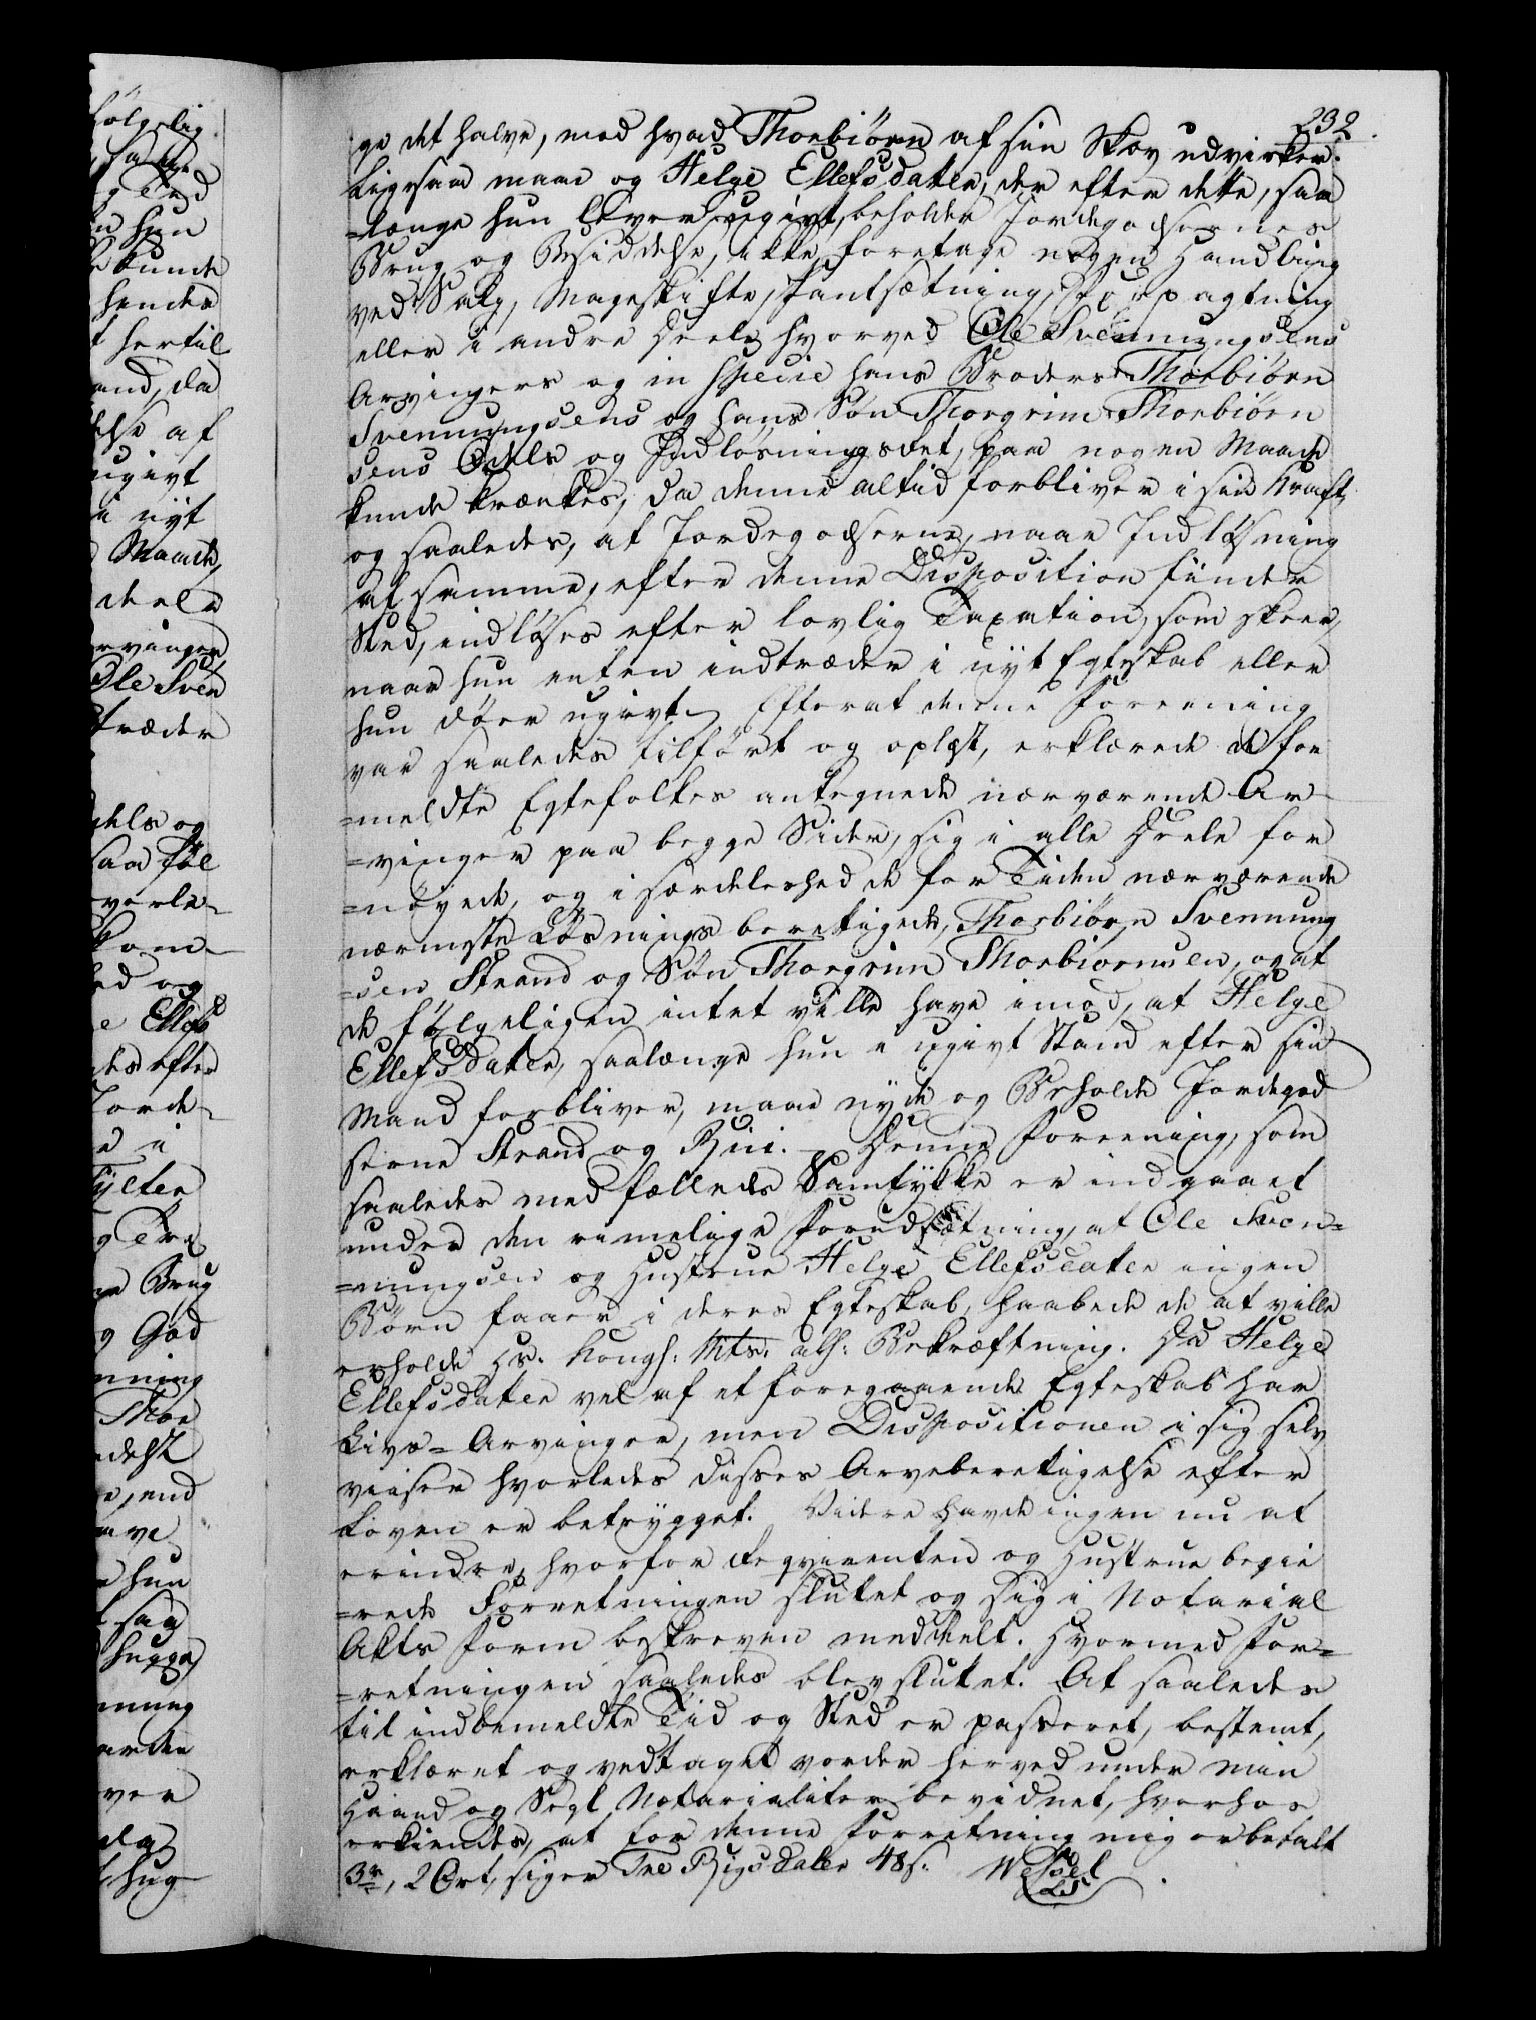 232.
ge det halve, mod hvad Thorbiörn af sin Skov udvirker.
Ligesaa maae og Helge Ellefsdatter, der efter dette, saa
=længe hun lever ugivt, beholder Jordegodsernes
Brug og Besiddelse, ikke foretage nogen Handling
ved Salg, Mageskifte, Pantsætning, Forpagtning
eller i andre Deele hvorved Ole Svennungsens
Arvingers og in specie hans Broders Thorbiörn
Svennungsens og hans Søn Thorgrim Thorbiörn
sens Odels og Indløsningsret, paa nogen Maade
kunde krænkes, da denne altid forbliver i sin Kraft
og saaledes, at Jordegodserne, naar Indløsning
af samme, efter denne Disposition finder
Sted, indløses efter lovlig Taxation, som skeer,
naar hun enten indtræder i nyt Egteskab eller
hun døer ugivt. Efterat denne Foreening
var saaledes tilført og oplæst, erklærede de for
=meldte Egtefolkes antegnede nærværende Ar
=vinger paa begge Sider, sig i alle Deele for
=nøyede, og i særdeleshed de for Tiden nærværende
nærmeste Løsningsberettigede, Thorbiörn Svennung
=sen Strand og Søn Thorgrim Thorbiørnsen, og at
de følgeligen intet ville have imod, at Helge
Ellefsdatter, saalænge hun i ugivt Stand efter sin
Mand forbliver, maae nyde og Beholde Jordegod
serne Strand og Rui. Denne Foreening, som
saaledes med fælleds Samtykke er indgaaet
under den rimelige Forudsætning, at Ole Sven=
=nungsen og Hustrue Helge Ellefsdatter ingen
Børn faaer i deres Egteskab, haabede de at ville
erholde Hs. Kongl: Mts: allh: Bekræftning. Da Helge
Ellefsdatter vel af et foregaaende Egteskab har
Livs=Arvinger, men Dispositionen i sig selv
viiser hvorledes disses Arveberettigelse efter
Loven er betrygget. Videre havde ingen nu at
erindre, hvorfor Reqvirenten og Hustrue begie
=rede Forretningen sluttet og sig i Notarial
Akts Form beskreven meddeelt. Hvormed For=
=retningen saaledes blev sluttet. At saaledes
til indbemeldte Tid og Sted er passeret, bestemt,
erklæret og vedtaget vorder herved under min
Haand og Segl Notarialiter bevidnet, hvorhos
erkiendes, at for denne Forretning mig er betalt
3 r, 2 Ort, siger Tre Rigsdaler 48 s. Wessel
LS